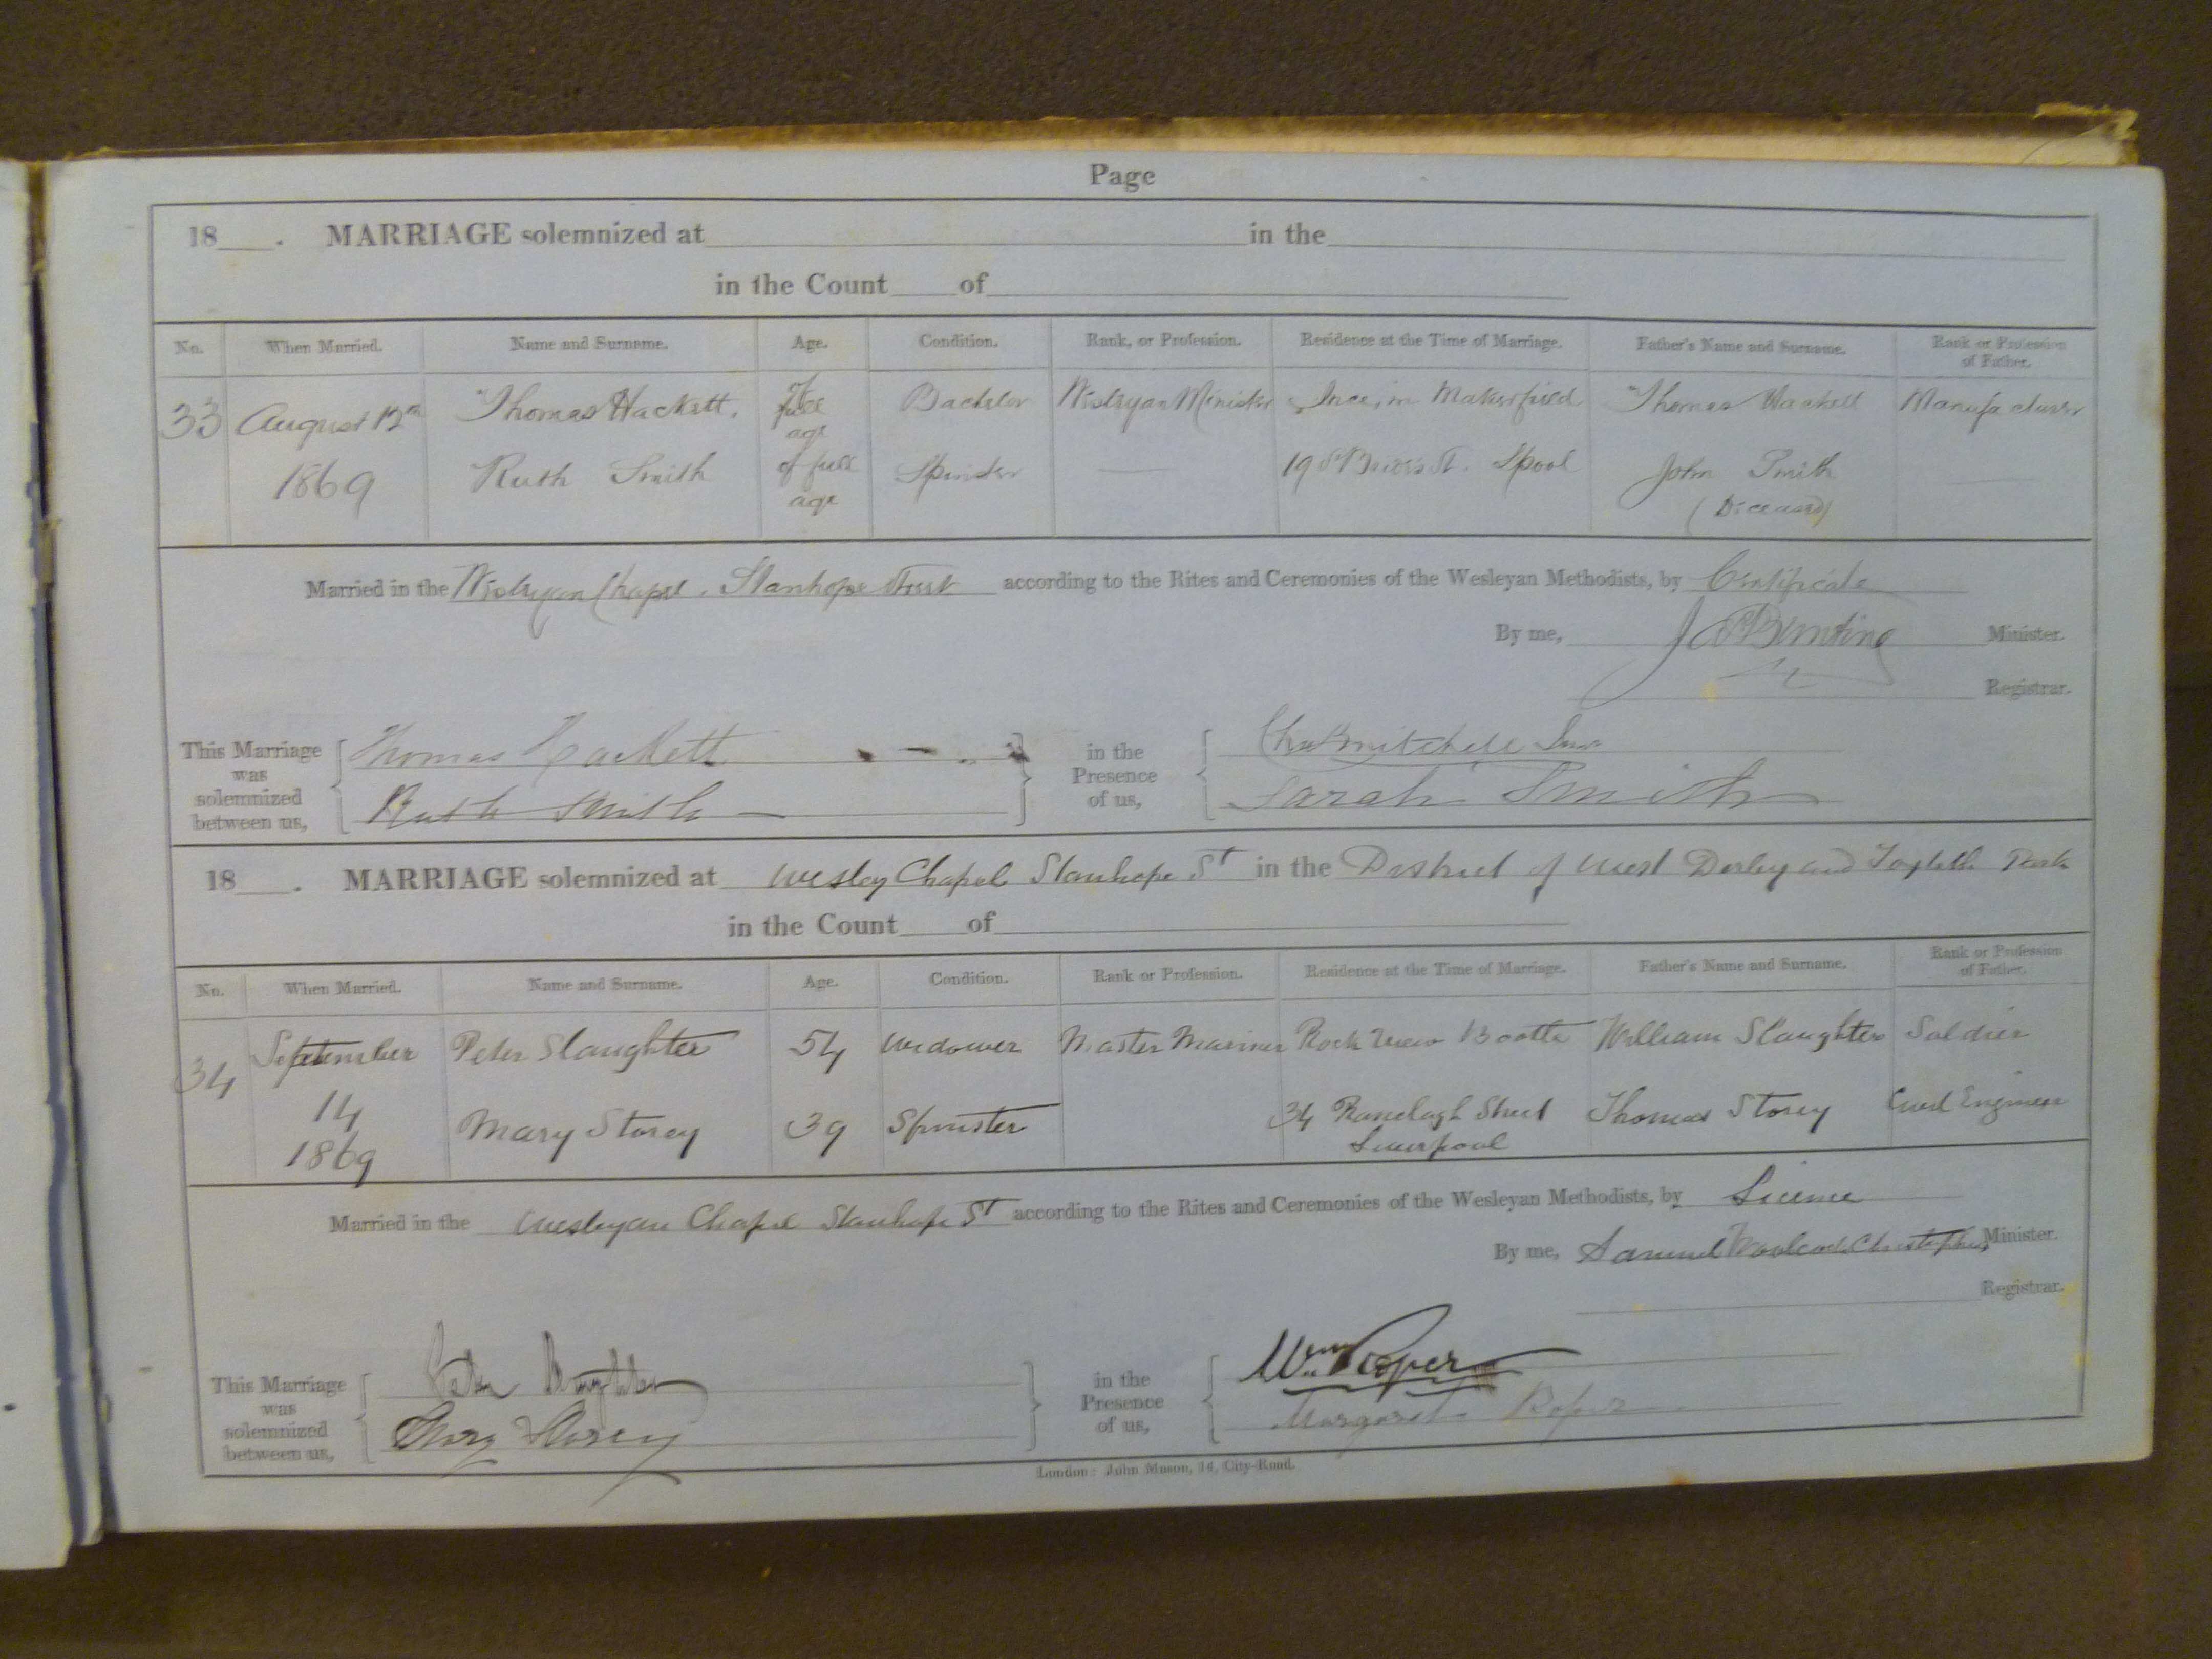 Page
18 . MARRIAGE solemnized at in the
in the Count of
No. When Married. Name and Surname. Age. Condition. Rank, or Profession. Residence at the Time of Marriage. Father's Name and Surname. Rank or Profession of Father.
33 August 12th Thomas Hackett, Of full age Bachelor Wesleyan Minister Ince, in Makerfield Thomas Hackett Manufacturer
1869 Ruth Smith of full age Spinster 19 St. Lpool John Smith
(Deceased)
Married in the Wesleyan Chapel, Stanhope Street according to the Rites and Ceremonies of the Wesleyan Methodists, by Certificate
By me, Bunting Minister.
Registrar.
This Marriage was solemnized between us, Thomas Hackett Ruth Smith in the Presence of us, Mitchell Sarah Smith
18 . MARRIAGE solemnized at Wesley Chapel Stanhope St in the District of West Derby and Toxteth Park
in the Count of
No. When Married. Name and Surname. Age. Condition. Rank or Profession. Residence at the Time of Marriage. Father's Name and Surname. Rank or Profession of Father.
34 September Peter Slaughter 54 Widower Master Mariner Rock View Bootle William Slaughter Soldier
14 1869 Mary Storey 39 Spinster 34 Ranelagh Street Liverpool Thomas Storey Civil Engineer
Married in the Wesleyan Chapel Stanhope St according to the Rites and Ceremonies of the Wesleyan Methodists, by Licence
By me, Samuel Christophers Minister.
Registrar.
This Marriage was solemnized between us, Peter Slaughter Mary Storey in the Presence of us, Wm Roper Margaret Roper
London: John Mason, 14, City-Road.